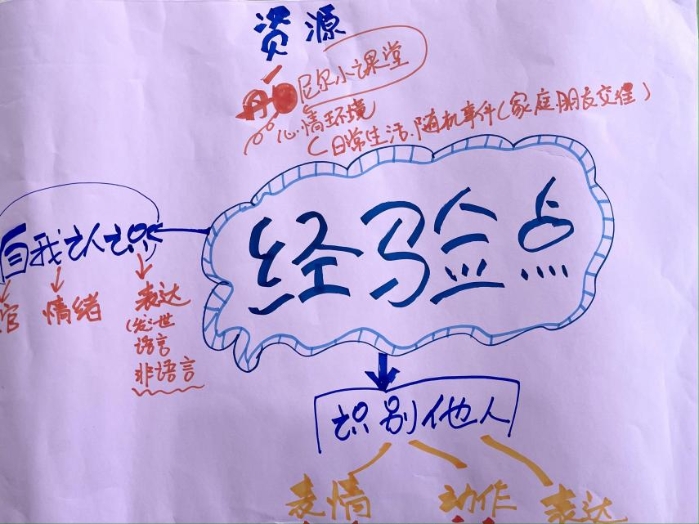 资源
尼尔小课堂
心情环境
(日常生活、随机事件(家庭朋友交往)
经验点
自我认识
情绪
表达
语言
非语言
识别他人
表情
动作
表达